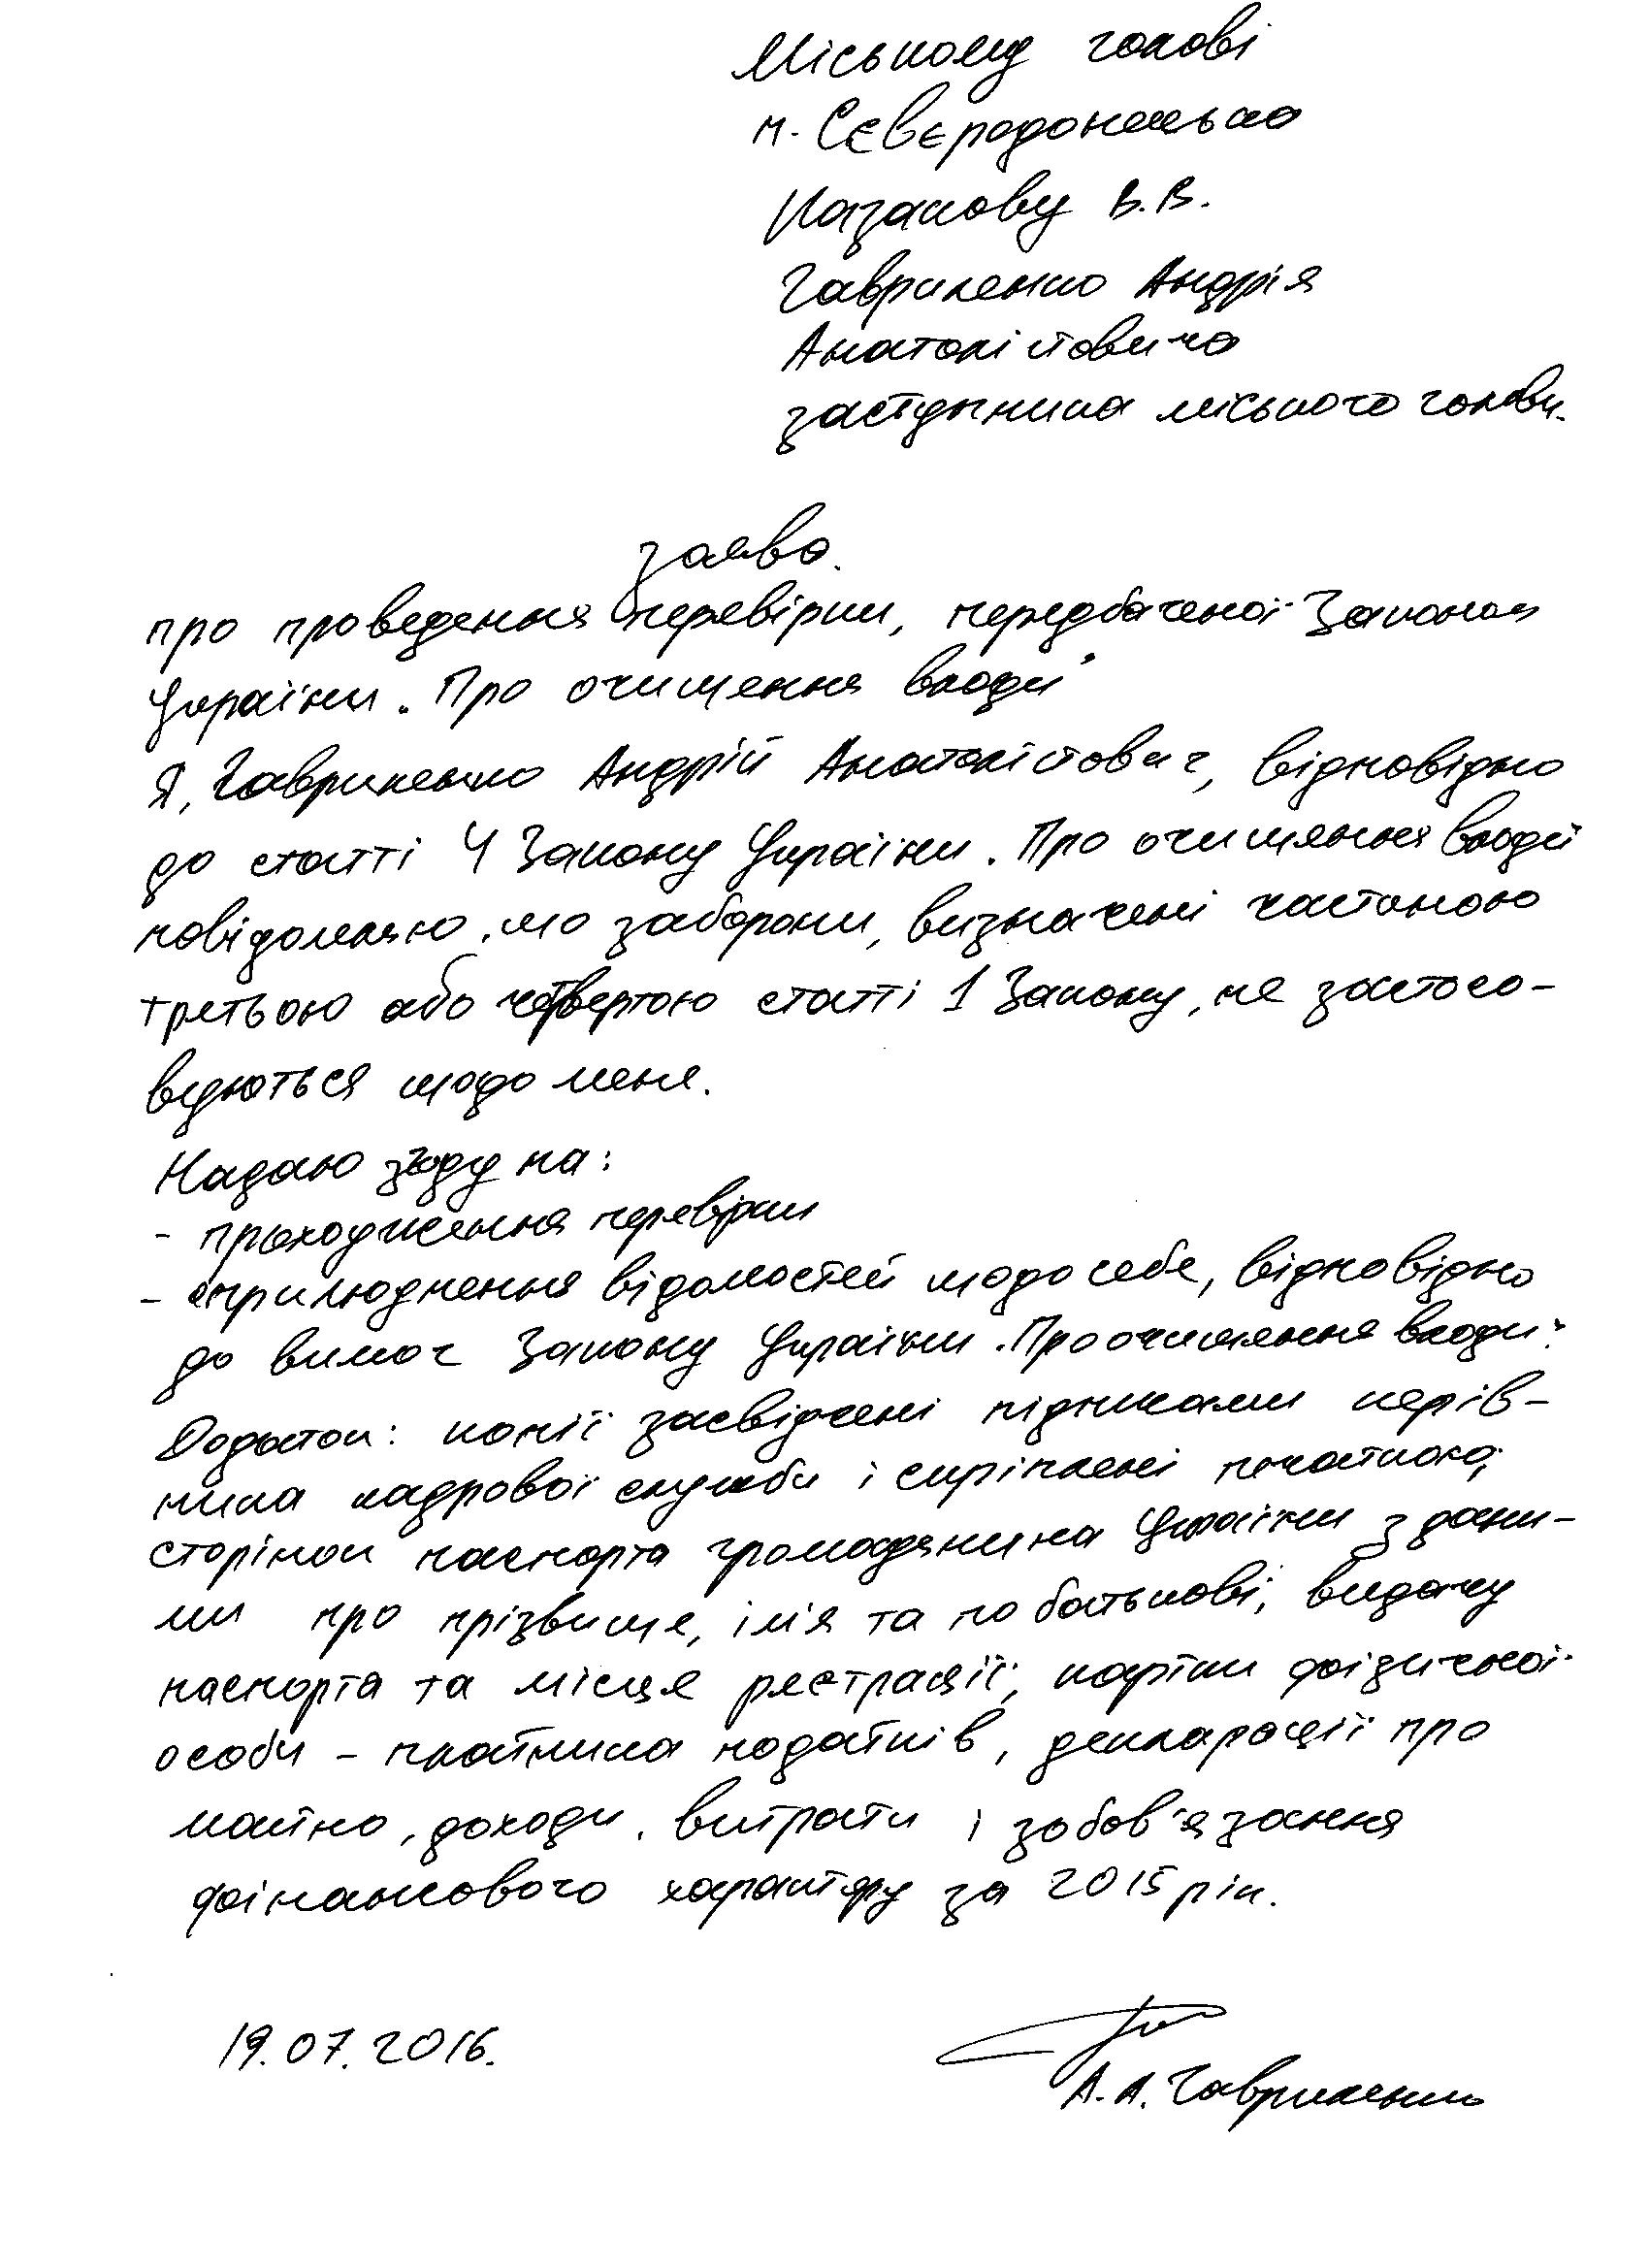 Міському голові
м. Сєвєродонецька
Казакову В.В.
Гавриленко Андрія
Анатолійовича
заступника міського голови.
заява.
про проведення перевірки, передбаченої Законом
України „Про очищення влади"
Я, Гавриленко Андрій Анатолійович, відповідно
до статті 4 Закону України „Про очищення влади"
повідомляю, що заборони, визначені частиною
третьою або четвертою статті 1 Закону, не застосо-
вуються щодо мене.
Надаю згоду на:
- проходження перевірки
- оприлюднення відомостей щодо себе, відповідно
до вимог Закону України „Про очищення влади".
Додаток: копії засвідчені підписами керів-
ника кадрової служби і скріплені печаткою;
сторінок паспорта громадянина України з дани-
ми про прізвище, ім'я та по батькові, видачу
паспорта та місце реєстрації, картки фізичної
особи – платника податків, декларації про
майно, доходи, витрати і зобов'язання
фінансового характеру за 2015 рік.
19.07.2016.
А.А. Гавриленко